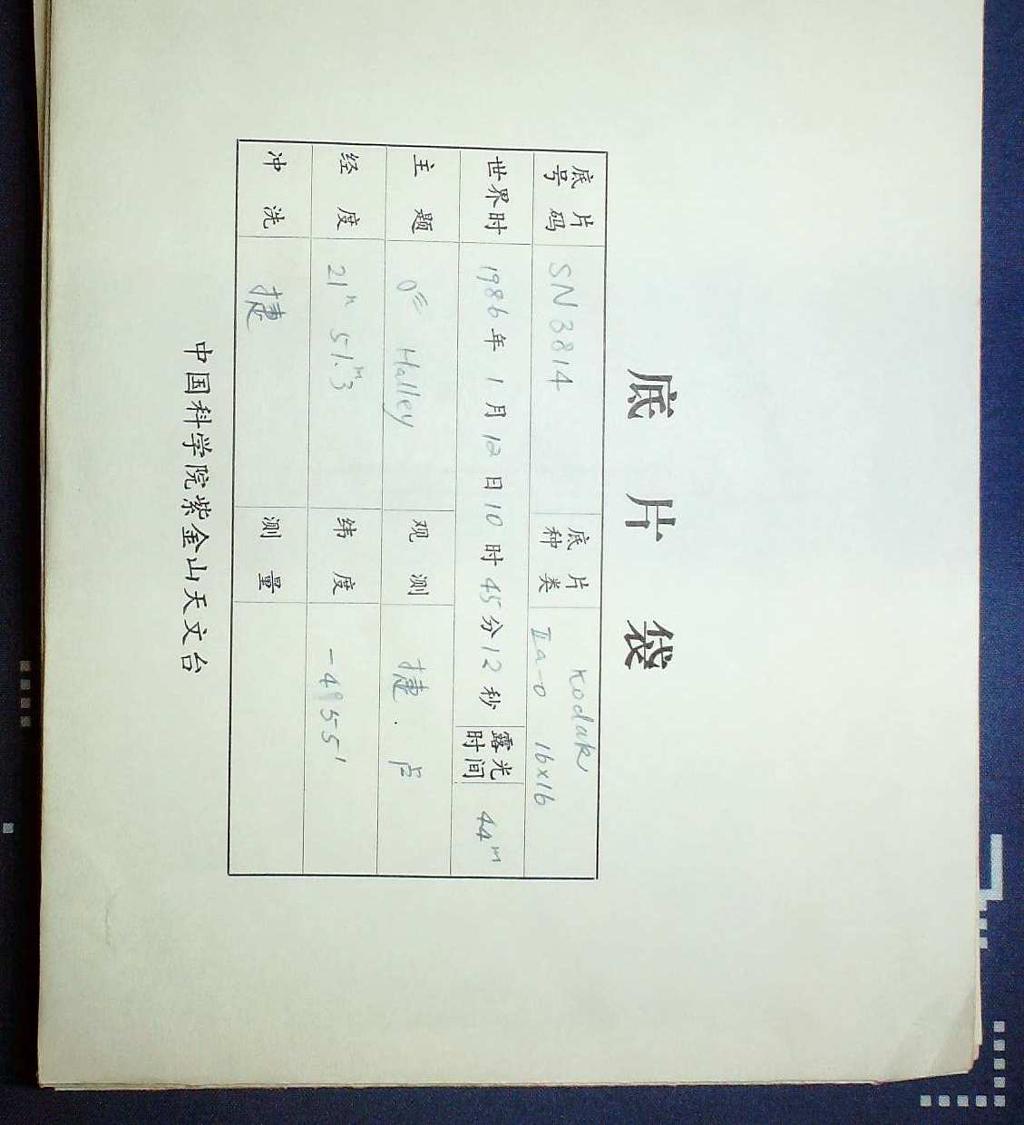 底片袋
底片号码 SN3814 底片种类 Kodak IIa-O 16×16
世界时 1986年1月12日10时45分12秒 露光时间 44m
主题 Halley 观测 捷.卢
经度 21h 51.m3 纬度 -4°55'
冲洗 捷 测量
中国科学院紫金山天文台